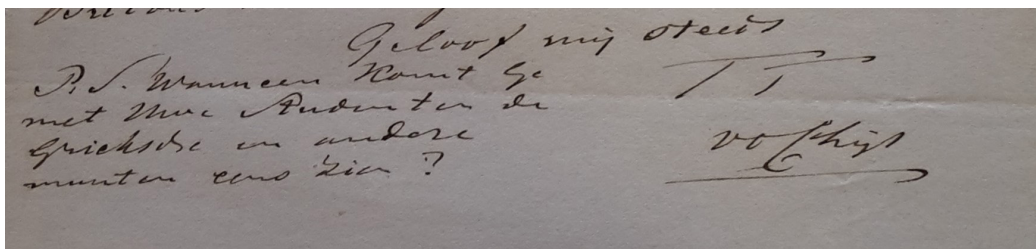 Geloof mij steeds
P.S. Wanneer komt Ge
T T
met Uwe Studenten de
Grieksche en andere
munten eens zien?